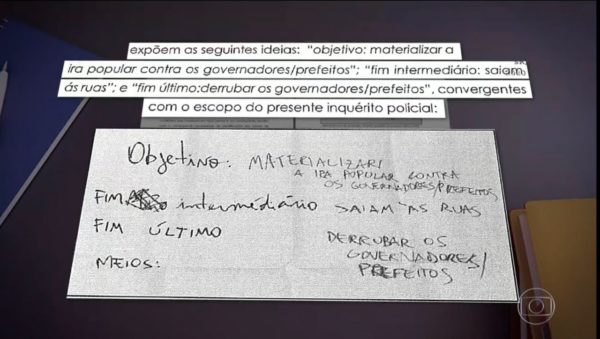 expõem as seguintes ideias: “objetivo: materializar a
ira popular contra os governadores/prefeitos”; “fim intermediário: saiam
ás ruas”; e “fim último:derrubar os governadores/prefeitos”, convergentes
com o escopo do presente inquérito policial:
Objetivo: MATERIALIZARI
A IRA POPULAR CONTRA
OS GOVERNADORES/PREFEITOS
FIM intermédiário SAIAM ÀS RUAS
FIM ÚLTIMO
DERRUBAR OS
GOVERNADORES/
PREFEITOS
MEIOS: